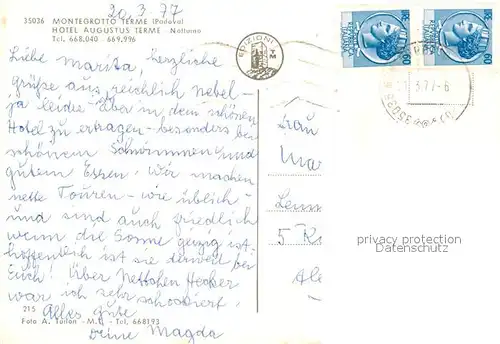 20. 3. 77
35036 MONTEGROTTO TERME (Padova)
HOTEL AUGUSTUS TERME Notturno
Tel. 668.040 669.996
EDIZIONI
T M
Liebe Marita, herzliche
grüße aus reichlich nebel-
ja leider - aber in dem schönen
Hotel zu ertragen - besonders bei
schönem Schwimmen und
gutem Essen. Wir machen
nette Touren - wie üblich -
und sind auch friedlich
wenn die Sonne geizig ist.
hoffentlich ist sie derweil bei
Euch! Über Nettchen
war ich sehr schockiert.
Alles gute
Deine Magda
3.77-6
35036
Frau
Mar
5 K
privacy protection
Datenschutz
215
Foto A. Tarlon - M.G. - Tel. 668193